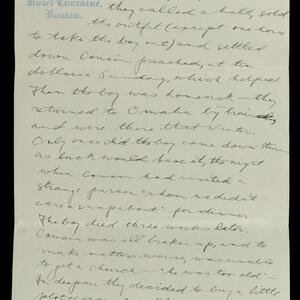 Hotel Touraine,
Boston.
they called a halt, sold
the outfit (except one horse
to take the boy out) and settled
down. Cousin preached, at ten
dollars a Sunday, which helped.
Then the boy was homesick — they
returned to Omaha by train
and were there that winter.
Only once did the boy come down
as luck would have it, the night
when Cousin had invited a
strange parson "whom we didn't
care a snap about" for dinner.
The boy died three weeks later.
Cousin was all broken up, and to
make matters worse, was unable
to get a church — "he was too old" —
In despair they decided to buy a little